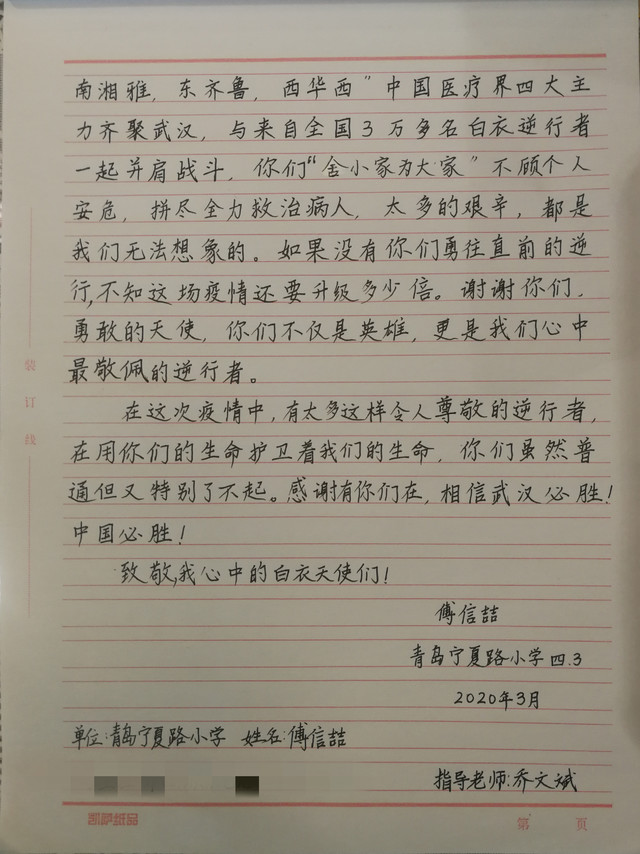 南湘雅，东齐鲁，西华西”中国医疗界四大主
力齐聚武汉，与来自全国3万多名白衣逆行者
一起并肩战斗，你们“舍小家为大家”不顾个人
安危，拼尽全力救治病人，太多的艰辛，都是
我们无法想象的。如果没有你们勇往直前的逆
行,不知这场疫情还要升级多少倍。谢谢你们，
勇敢的天使，你们不仅是英雄，更是我们心中
最敬佩的逆行者。
在这次疫情中，有太多这样令人尊敬的逆行者，
在用你们的生命护卫着我们的生命，你们虽然普
通但又特别了不起。感谢有你们在，相信武汉必胜！
中国必胜！
致敬,我心中的白衣天使们！
傅信喆
青岛宁夏路小学四.3
2020年3月
单位:青岛宁夏路小学 姓名:傅信喆
指导老师:乔文斌
装订线
凯萨纸品
第 页